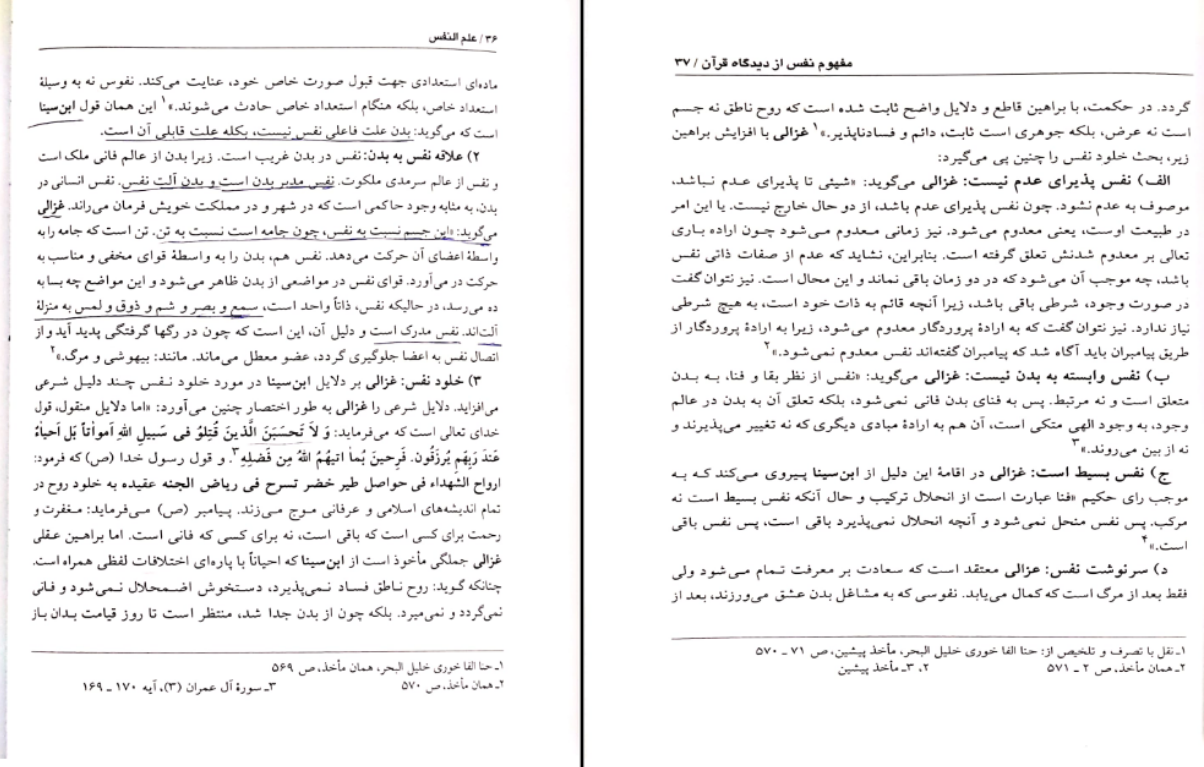 ۳۶ / علم النفس
ماده‌ای استعدادی جهت قبول صورت خاص خود، عنایت می‌کند. نفوس نه به وسیلهٔ
استعداد خاص، بلکه هنگام استعداد خاص حادث می شوند.»۱ این همان قول ابن‌سینا
است که می‌گوید: بدن علت فاعلی نفس نیست، بکله علت قابلی آن است.
۲) علاقه نفس به بدن: نفس در بدن غریب است. زیرا بدن از عالم فانی ملک است
و نفس از عالم سرمدی ملکوت. نفس مدبر بدن است و بدن آلت نفس. نفس انسانی در
بدن، به مثابه وجود حاکمی است که در شهر و در مملکت خویش فرمان می‌راند. غزالی
می‌گوید: «این جسم نسبت به نفس، چون جامه است نسبت به تن. تن است که جامه را به
واسطهٔ اعضای آن حرکت می‌دهد. نفس هم، بدن را به واسطهٔ قوای مخفی و مناسب به
حرکت در می‌آورد. قوای نفس در مواضعی از بدن ظاهر می‌شود و این مواضع چه بسا به
ده می‌رسد، در حالیکه نفس، ذاتاً واحد است، سمع و بصر و شم و ذوق و لمس به منزلهٔ
آلت‌اند. نفس مدرک است و دلیل آن، این است که چون در رگها گرفتگی پدید آید و از
اتصال نفس به اعضا جلوگیری گردد، عضو معطل می‌ماند. مانند: بیهوشی و مرگ.»۲
۳) خلود نفس: غزالی بر دلایل ابن‌سینا در مورد خلود نفس چند دلیل شرعی
می‌افزاید. دلایل شرعی را غزالی به طور اختصار چنین می‌آورد: «اما دلایل منقول، قول
خدای تعالی است که می‌فرماید: وَ لاَ تَحسَبَنَ الَّذینَ قُتِلوُ فی سَبیلِ اللهِ اَمواتاً بَل اَحیاءُ
عَندَ رَبِهِم یُرزَقُون. فَرِحینَ بُماَ اتیهُمُ اللهُ مِن فَضلِهِ۳. و قول رسول خدا (ص) که فرمود:
ارواح الشهداء فی حواصل طیر خضر تسرح فی ریاض الجنه عقیده به خلود روح در
تمام اندیشه‌های اسلامی و عرفانی موج می‌زند. پیامبر (ص) می‌فرماید: مغفرت و
رحمت برای کسی است که باقی است، نه برای کسی که فانی است. اما براهین عقلی
غزالی جملگی مأخوذ است از ابن‌سینا که احیاناً با پاره‌ای اختلافات لفظی همراه است.
چنانکه گوید: روح ناطق فساد نمی‌پذیرد، دستخوش اضمحلال نمی‌شود و فانی
نمی‌گردد و نمی‌میرد. بلکه چون از بدن جدا شد، منتظر است تا روز قیامت بدان باز
۱ـ حنا الفا خوری خلیل البحر، همان مأخذ، ص ۵۶۹
۲ـ همان مأخذ، ص ۵۷۰
۳ـ سورهٔ آل عمران (۳)، آیه ۱۷۰ ـ ۱۶۹
مفهوم نفس از دیدگاه قرآن / ۳۷
گردد. در حکمت، با براهین قاطع و دلایل واضح ثابت شده است که روح ناطق نه جسم
است نه عرض، بلکه جوهری است ثابت، دائم و فسادناپذیر.»۱ غزالی با افزایش براهین
زیر، بحث خلود نفس را چنین پی می‌گیرد:
الف) نفس پذیرای عدم نیست: غزالی می‌گوید: «شیئی تا پذیرای عدم نباشد،
موصوف به عدم نشود. چون نفس پذیرای عدم باشد، از دو حال خارج نیست. یا این امر
در طبیعت اوست، یعنی معدوم می‌شود. نیز زمانی معدوم می‌شود چون اراده باری
تعالی بر معدوم شدنش تعلق گرفته است. بنابراین، نشاید که عدم از صفات ذاتی نفس
باشد، چه موجب آن می‌شود که در دو زمان باقی نماند و این محال است. نیز نتوان گفت
در صورت وجود، شرطی باقی باشد، زیرا آنچه قائم به ذات خود است، به هیچ شرطی
نیاز ندارد. نیز نتوان گفت که به ارادهٔ پروردگار معدوم می‌شود، زیرا به ارادهٔ پروردگار از
طریق پیامبران باید آگاه شد که پیامبران گفته‌اند نفس معدوم نمی‌شود.»۲
ب) نفس وابسته به بدن نیست: غزالی می‌گوید: «نفس از نظر بقا و فنا، به بدن
متعلق است و نه مرتبط. پس به فنای بدن فانی نمی‌شود، بلکه تعلق آن به بدن در عالم
وجود، به وجود الهی متکی است، آن هم به ارادهٔ مبادی دیگری که نه تغییر می‌پذیرند و
نه از بین می‌روند.»۳
ج) نفس بسیط است: غزالی در اقامهٔ این دلیل از ابن‌سینا پیروی می‌کند که به
موجب رای حکیم «فنا عبارت است از انحلال ترکیب و حال آنکه نفس بسیط است نه
مرکب. پس نفس منحل نمی‌شود و آنچه انحلال نمی‌پذیرد باقی است، پس نفس باقی
است.»۴
د) سرنوشت نفس: عزالی معتقد است که سعادت بر معرفت تمام می‌شود ولی
فقط بعد از مرگ است که کمال می‌یابد. نفوسی که به مشاغل بدن عشق می‌ورزند، بعد از
۱ـ نقل با تصرف و تلخیص از: حنا الفا خوری خلیل البحر، مأخذ پیشین، ص ۷۱ ـ ۵۷۰
۲ـ همان مأخذ، ص ۲ ـ ۵۷۱
۲، ۳ـ مأخذ پیشین